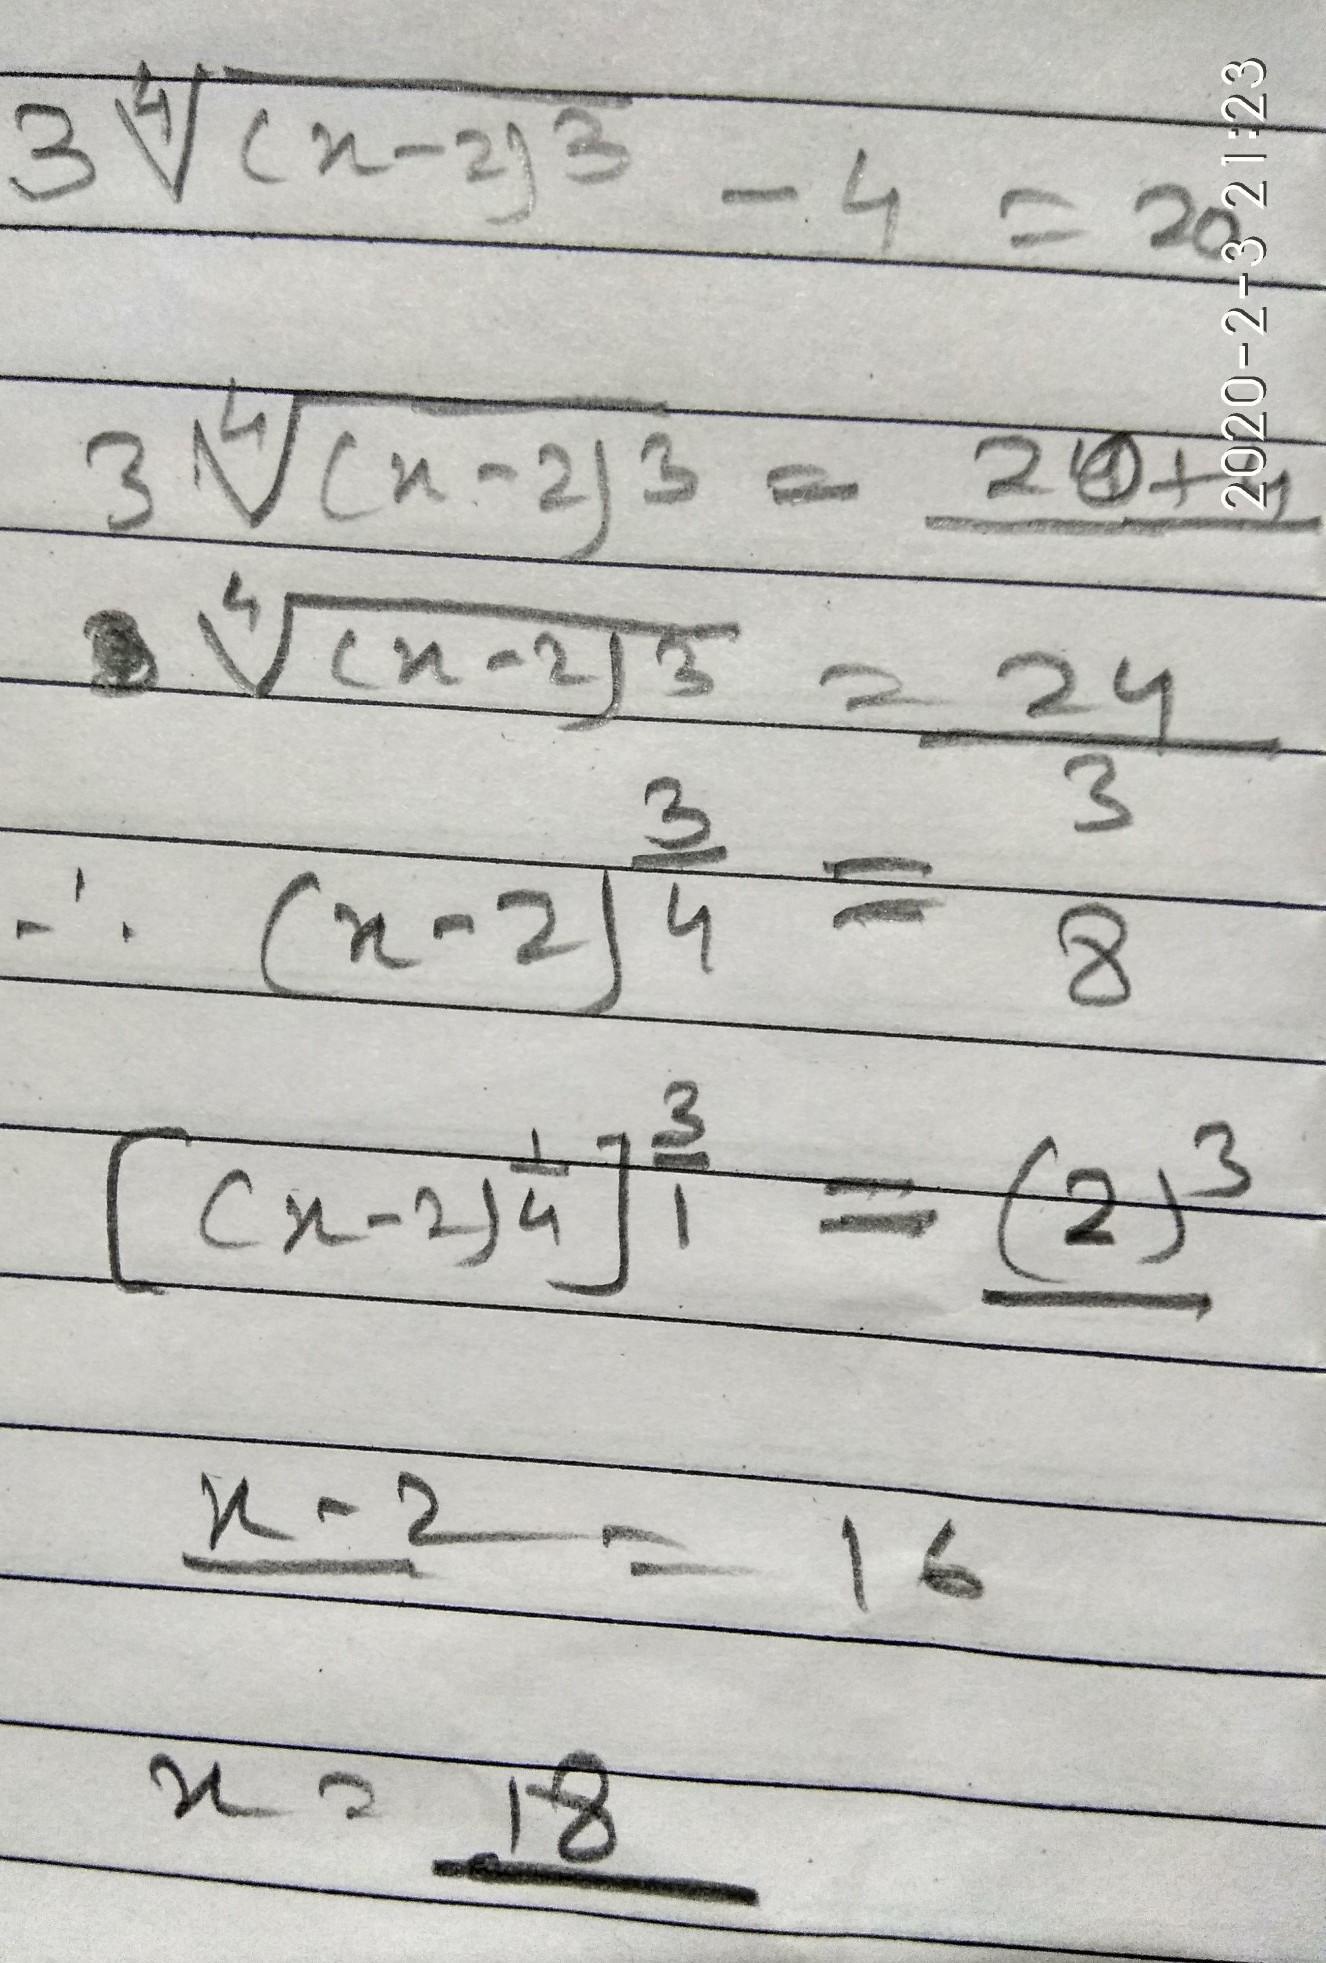 3 ∜(x-2)3 - 4 = 20
3 ∜(x-2)3 = 20+4
∜(x-2)3 = 24/3
∴ (x-2)^(3/4) = 8
[(x-2)^(1/4)]^(3/1) = (2)^3
x-2 = 16
x = 18
2020-2-3 21:23